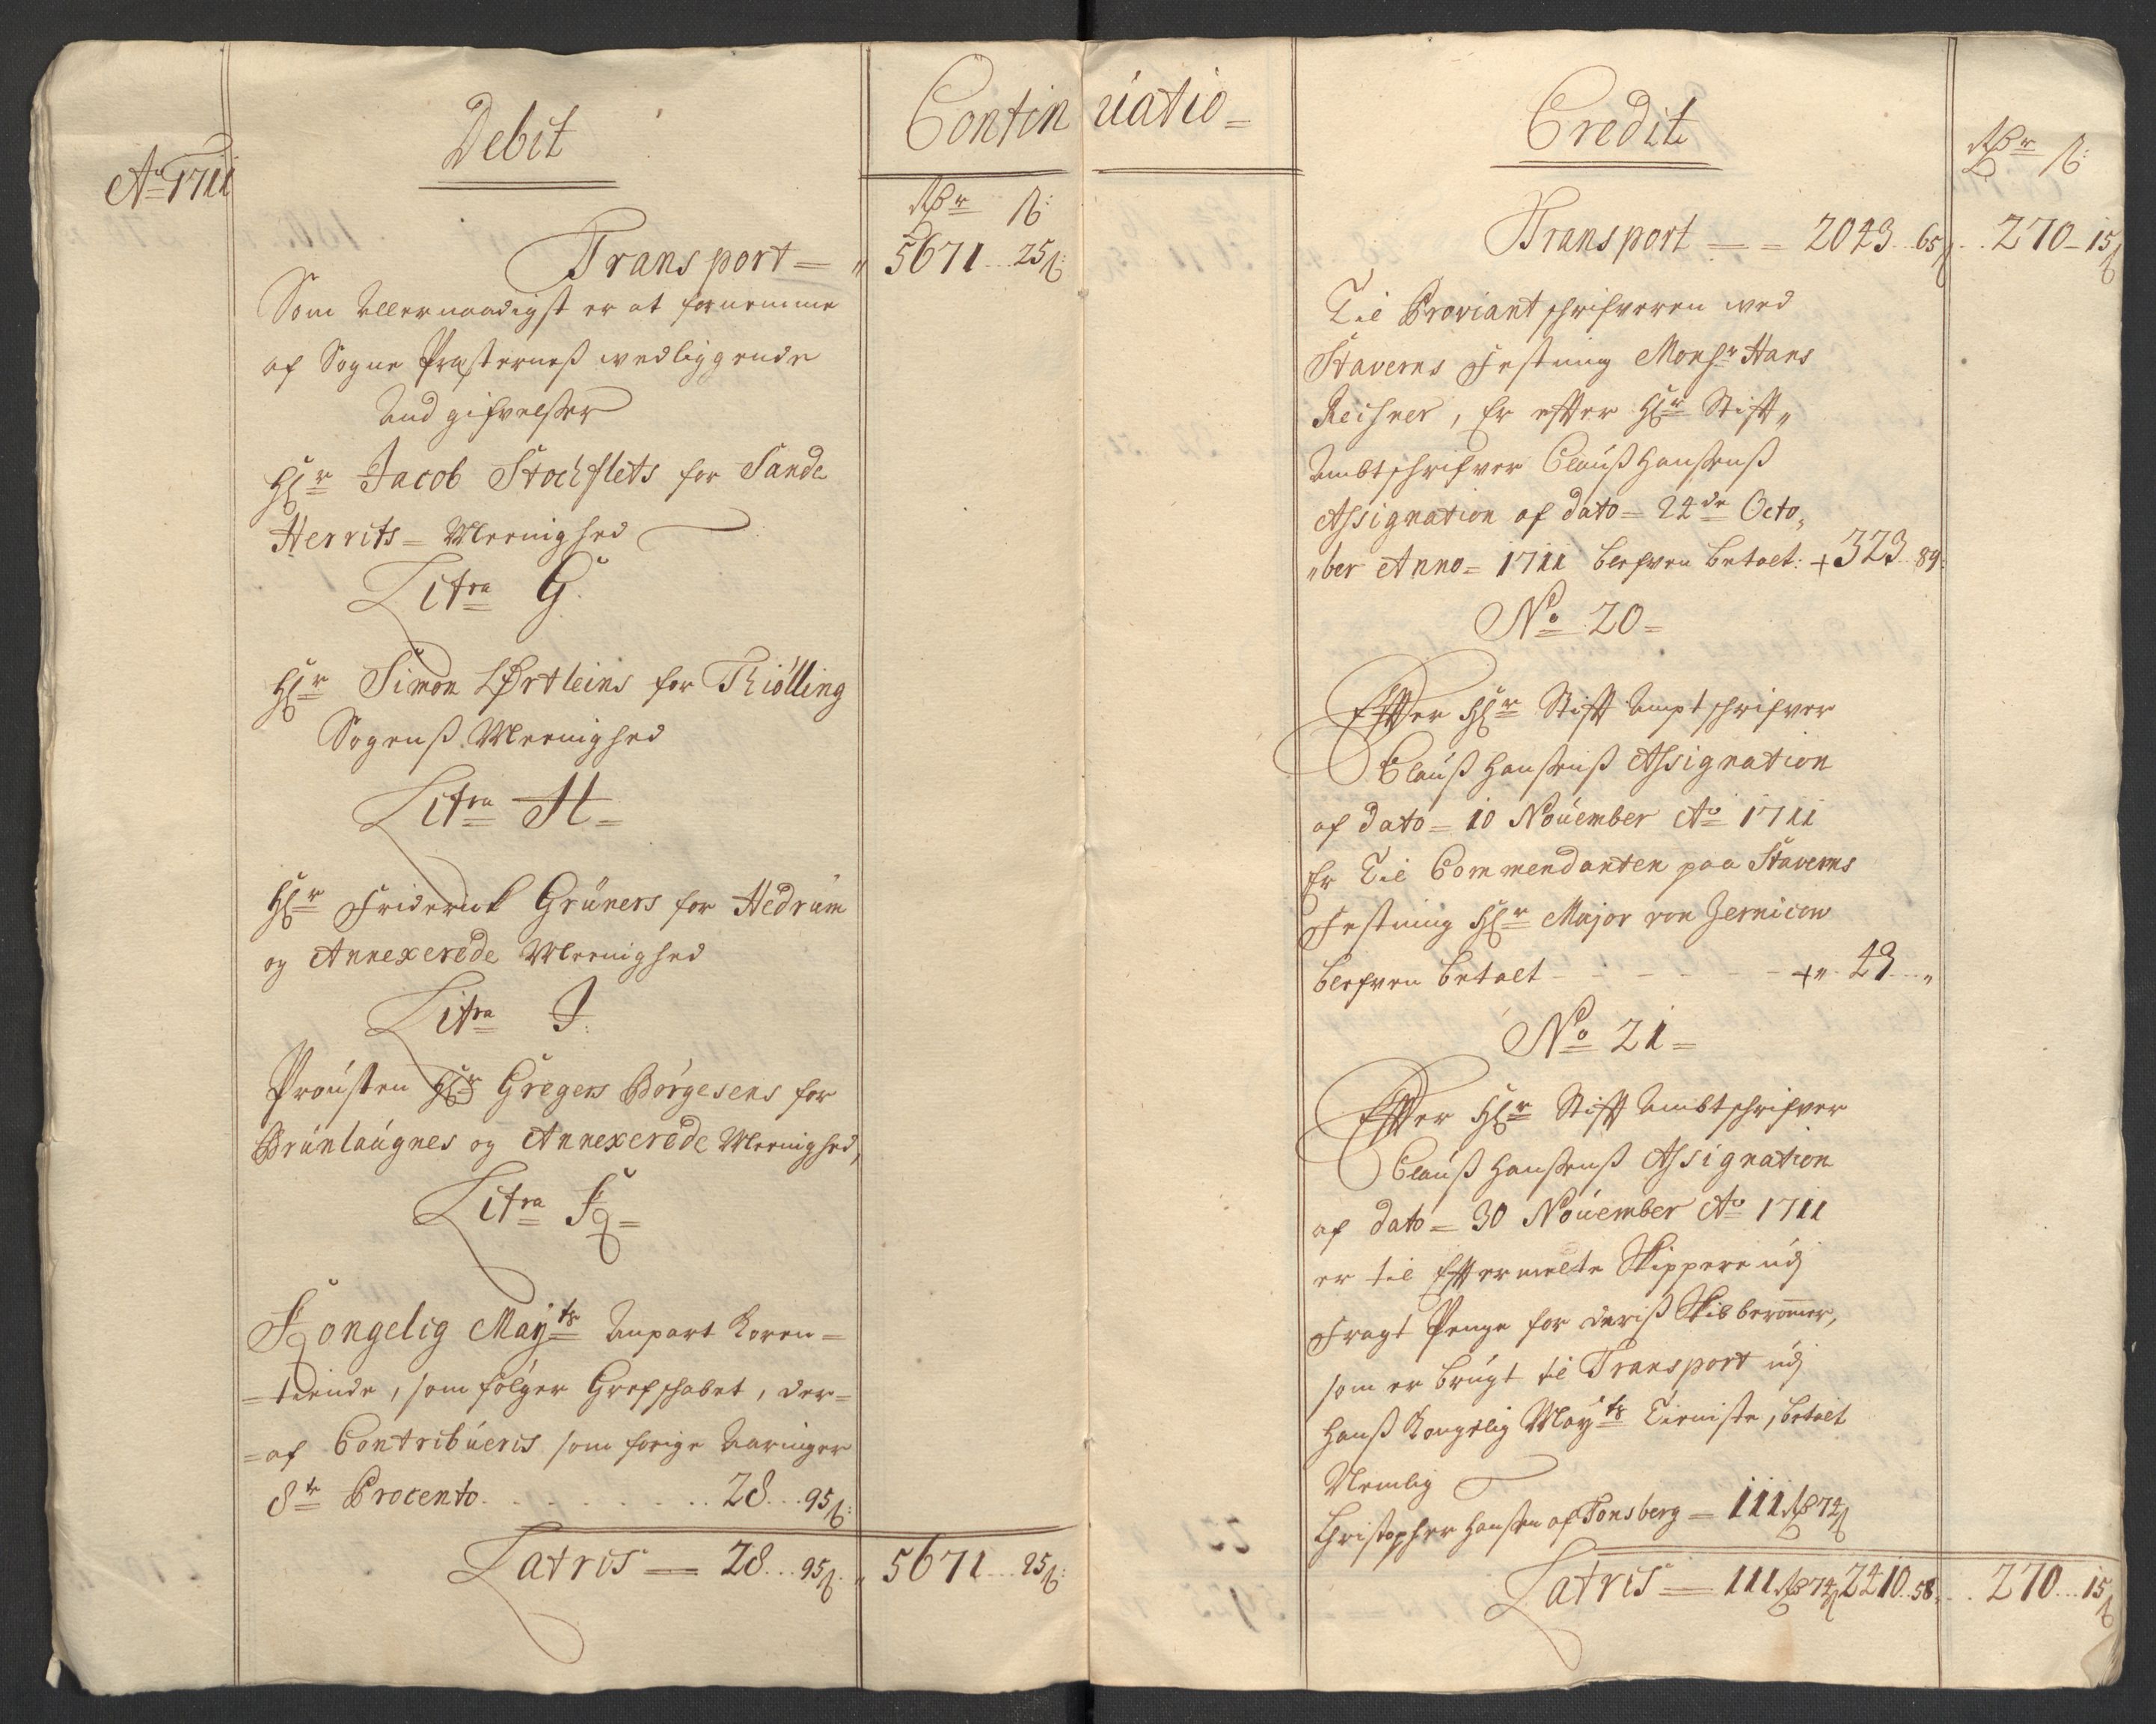 Debit
Ao 1711
Continuatio =
Rdr ß:
Transport = " 5671 .. 25ß:
Som Allernaadigst er at fornemme
af Sogne Præsterneß wedliggende
Und gifvelßer
Hr Jacob Stochflets for Sande
Herrits = Meenighed
Litra G.
Hr Simon LØrtleins for Thiölling
Sogenß Meenighed
Litra H =
Hr Friderick Grüners for Hedrum
og Annexerede Meenighed
Litra I:
Prousten Hr Gregers Börgesens for
Brunlaugnes og Annexerede Meenighed,
Litra K =
Kongelig Mayts Anpart Koren =
= tiende, som fölger Grefschabet, der =
= af Contribueris som forige Aaringer
8te Procento . . . . . . . 28 .. 95ß:
Latris = 28 .. 95ß. " 5671 ... 25ß:
Credit
Rdr ß:
Transport = = 2043 .. 65ß .. 270 - 15ß
Til Proviantschrifveren wed
Staverns Festning Monsr Hans
Reisner, Er efter Hr Stift"
Ambtschrifver Clauß Hanßenß
Assignation af dato = 24de Octo"
"ber Anno = 1711 blefven betalt: + 323 .. 89:
No 20 =
Efter Hr Stift Amptschrifver
Clauß Hanßenß Assignation
af dato = 10 November Ao 1711
Er Til Commendanten paa Staverns
Festning Hr Major von Zernicow
blefven betalt - - - - - - + " 43 ... "
No 21 =
Efter Hr Stift Ambtschrifver
Clauß Hanßenß Assignation
af dato = 30 November Ao 1711
er til Eftermelte Skippere udj
Fragt Penge for deriß Skibberommer,
som er brugt til Transport udj
Hanß Kongelig Mayts Tieniste, betalt
Nemlig
Christopher Hanßen af Tonsberg = 111 Rd 74ß
Latris = 111 Rd 74ß 2410 .. 58 " .. 270 ... 15ß